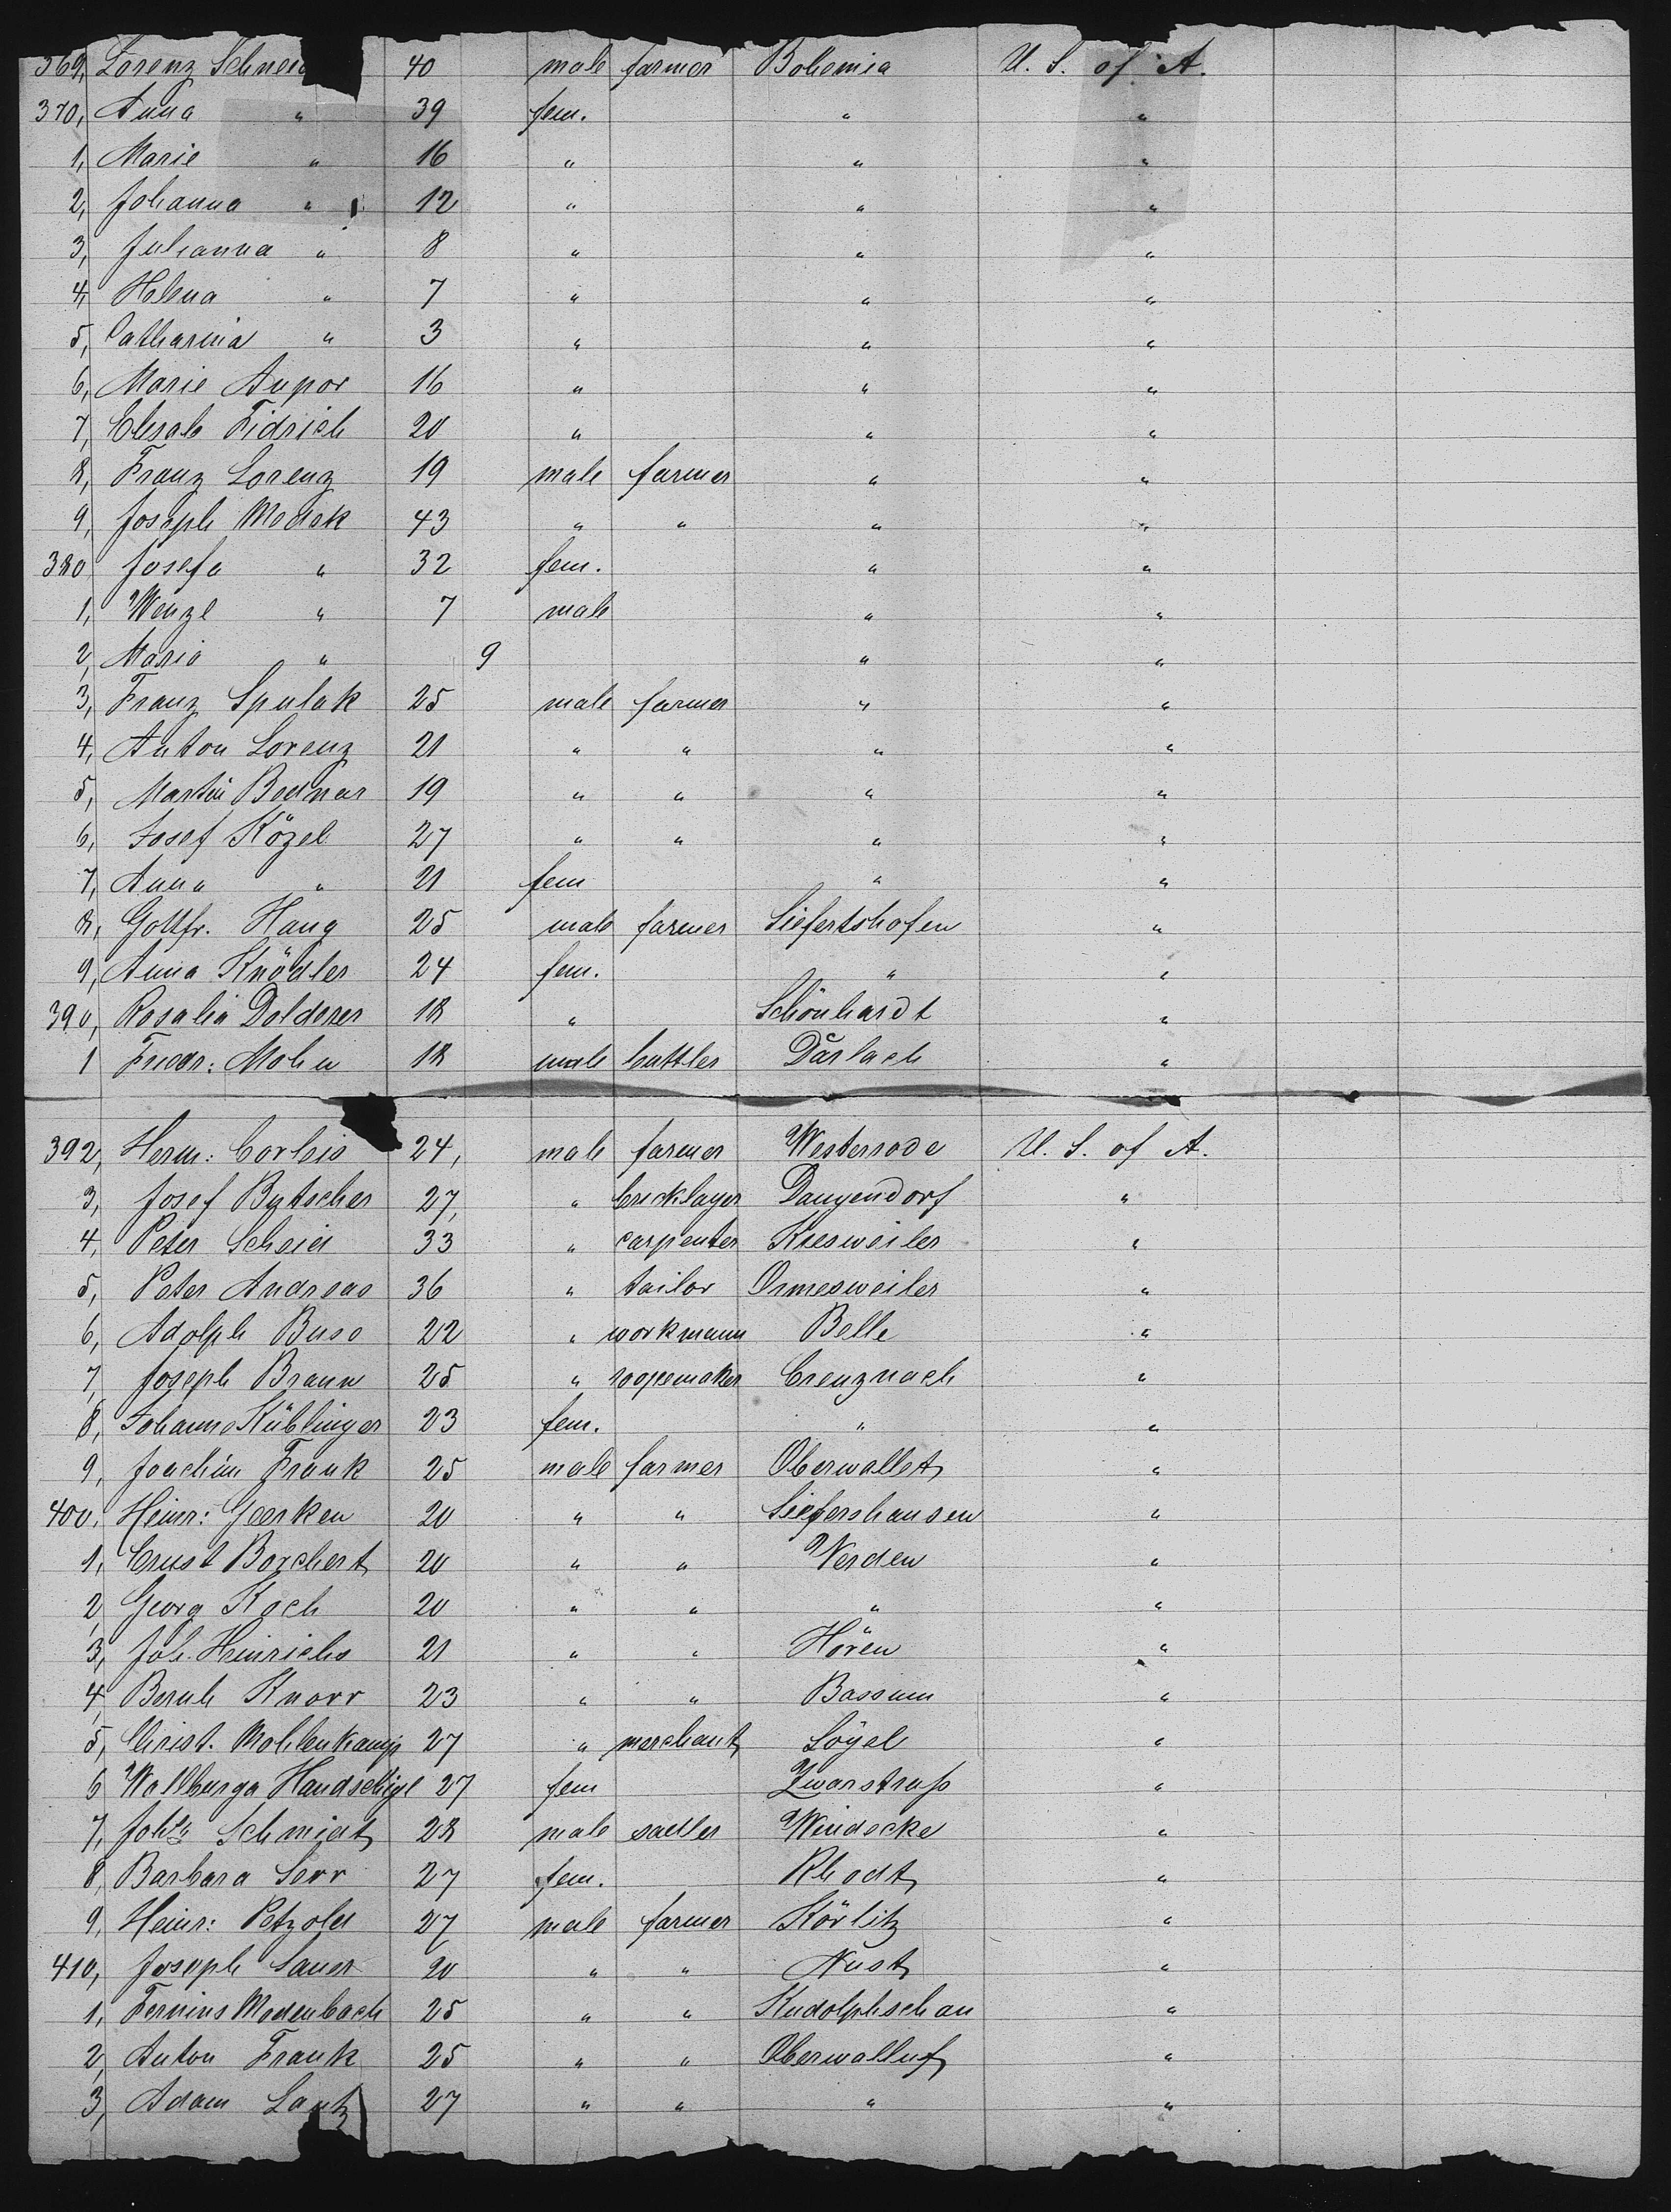 369, Lorenz Schneid 40 male farmer Bohemia U. S. of A.
370, Anna " 39 fem. " "
1, Marie " 16 " " "
2, Johanna " 12 " " "
3, Julianna " 8 " " "
4, Helena " 7 " " "
5, Catharina " 3 " " "
6, Marie Aupor 16 " " "
7, Elisab Fidrich 20 " " "
8, Franz Lorenz 19 male farmer " "
9, Joseph Modek 43 " " " "
380 Josefa " 32 fem. " "
1, Wenzl " 7 male " "
2, Maria " 9 " "
3, Franz Spulak 25 male farmer " "
4, Anton Lorenz 21 " " " "
5, Martin Bednar 19 " " " "
6, Josef Közel 27 " " " "
7, Anna " 21 fem " "
8, Gottfr. Haug 25 male farmer Siefertshofen "
9, Anna Knödler 24 fem. " "
390, Rosalia Dolderer 18 " Schönhardt "
1 Friedr: Mohn 18 male buttler Darlach "
392, Herm: Corleis 24, male farmer Westerrode U. S. of A.
3, Josef Butscher 27, " bricklayer Daugendorf "
4, Peter Scheid 33 " carpenter Kresweiler "
5, Peter Andreas 36 " tailor Ormesweiler "
6, Adolph Buso 22 " workmann Belle "
7, Joseph Braun 25 " ropemaker Creuznach "
8, Johanna Küblinger 23 fem. " "
9, Joachim Frank 25 male farmer Oberwallet "
400, Heinr: Geerken 20 " " Siefershausen "
1, Ernst Borchert 20 " " Verden "
2, Georg Koch 20 " " " "
3, Joh. Heinrichs 21 " " Hören "
4, Bernh Knorr 23 " " Bassum "
5, Christ. Mohlenkamp 27 " merchant Sögel "
6 Wallburga Handschigl 27 fem "
7, Johs Schmidt 28 male sadler Windecke "
8, Barbara Serr 27 fem. Rhodt "
9, Heinr: Petzold 27 male farmer Körlitz "
410, Joseph Sauer 20 " " Nust "
1, Modenbach 25 " " Rudolphschau "
2, Anton Frank 25 " " Oberwalluf "
3, Adam Lautz 27 " " " "